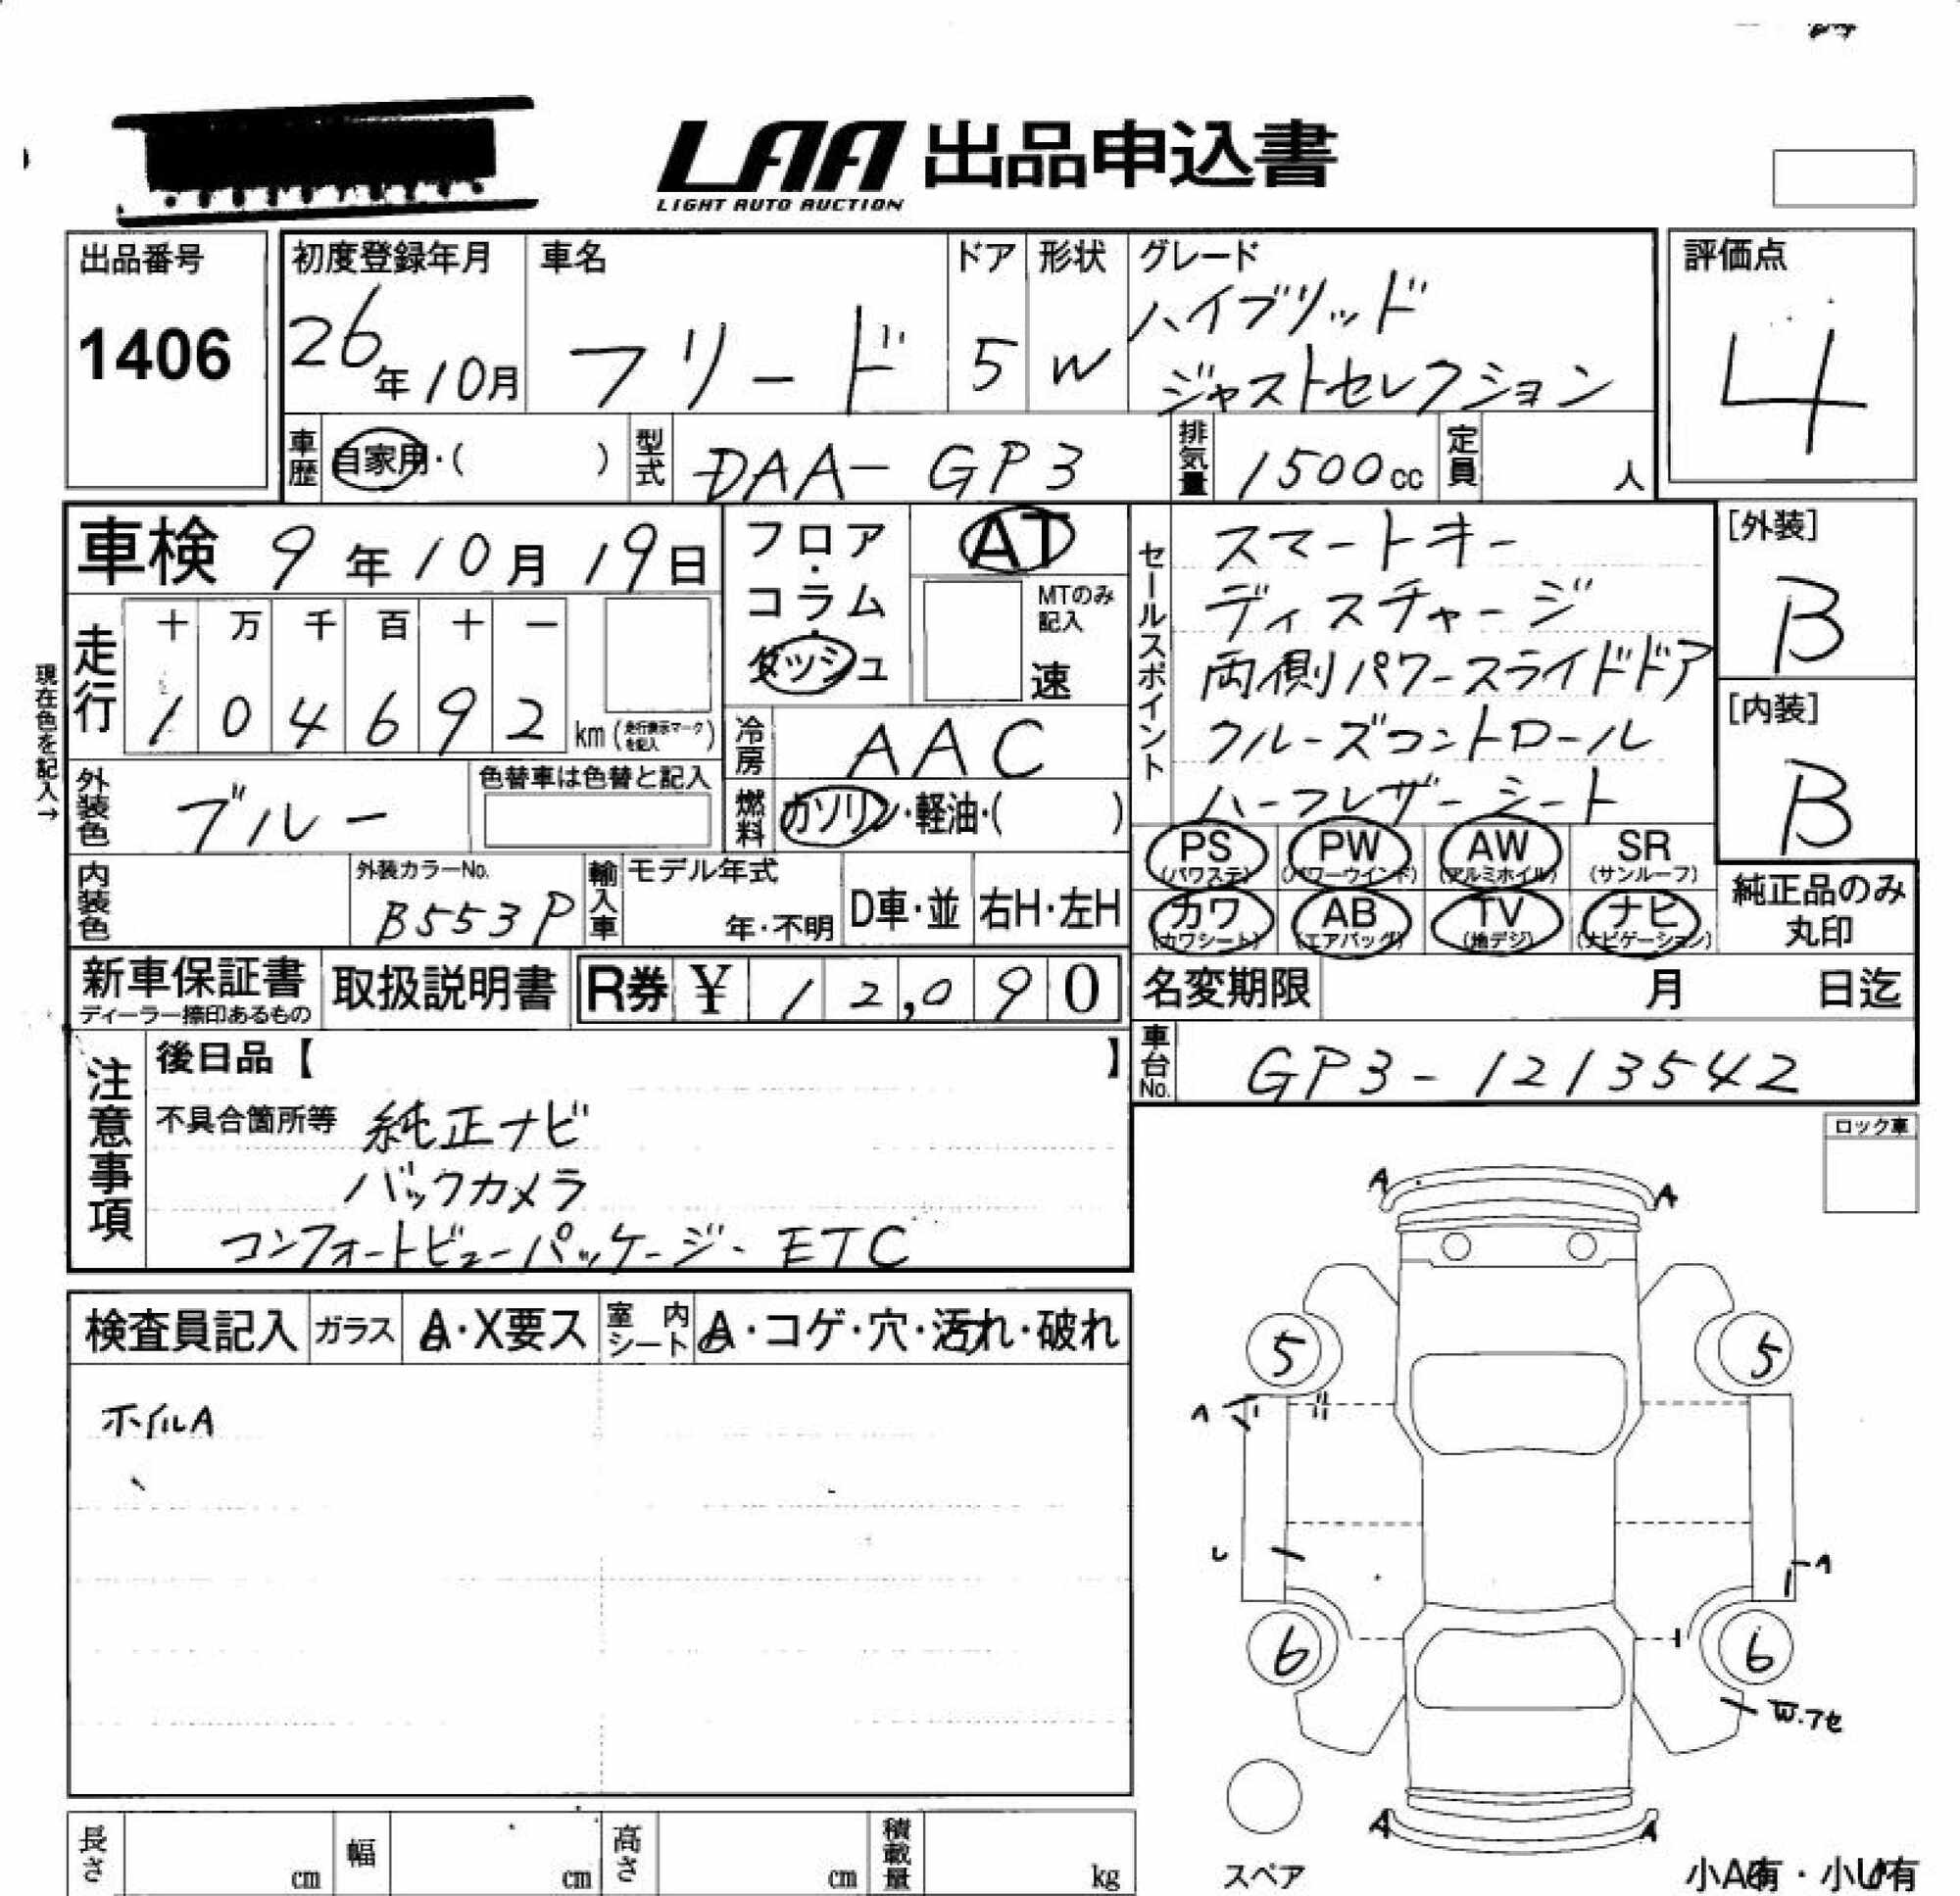 LAA 出品申込書
LIGHT AUTO AUCTION
出品番号
1406
初度登録年月
26年10月
車名
フリード
ドア
5
形状
W
グレード
ハイブリッド
ジャストセレクション
評価点
4
車歴 自家用・( )
型式 DAA-GP3
排気量 1500cc
定員 人
車検 9年10月19日
走行
十 万 千 百 十 一
1 0 4 6 9 2 km (走行表示マークを記入)
現在色を記入→
フロア・コラム・ダッシュ
AT
MTのみ記入
速
冷房 AAC
燃料 ガソリン・軽油・( )
セールスポイント
スマートキー
ディスチャージ
両側パワースライドドア
クルーズコントロール
ハーフレザーシート
[外装]
B
[内装]
B
外装色 ブルー
色替車は色替と記入
内装色
外装カラーNo.
B553P
輸入車
モデル年式
年・不明
D車・並
右H・左H
PS (パワステ)
PW (パワーウインド)
AW (アルミホイル)
SR (サンルーフ)
カワ (カワシート)
AB (エアバッグ)
TV (地デジ)
ナビ (ナビゲーション)
純正品のみ
丸印
新車保証書
ディーラー捺印あるもの
取扱説明書
R券 ¥ 12,090
名変期限 月 日迄
車台No. GP3-1213542
注意事項
後日品【 】
不具合箇所等 純正ナビ
バックカメラ
コンフォートビューパッケージ・ETC
ロック車
検査員記入
ガラス A・X要ス
室内シート A・コゲ・穴・汚れ・破れ
ホイルA
A
A
5
5
A
レ
A
6
6
W.アセ
A
A
スペア
小A有・小U有
長さ cm
幅 cm
高さ cm
積載量 kg